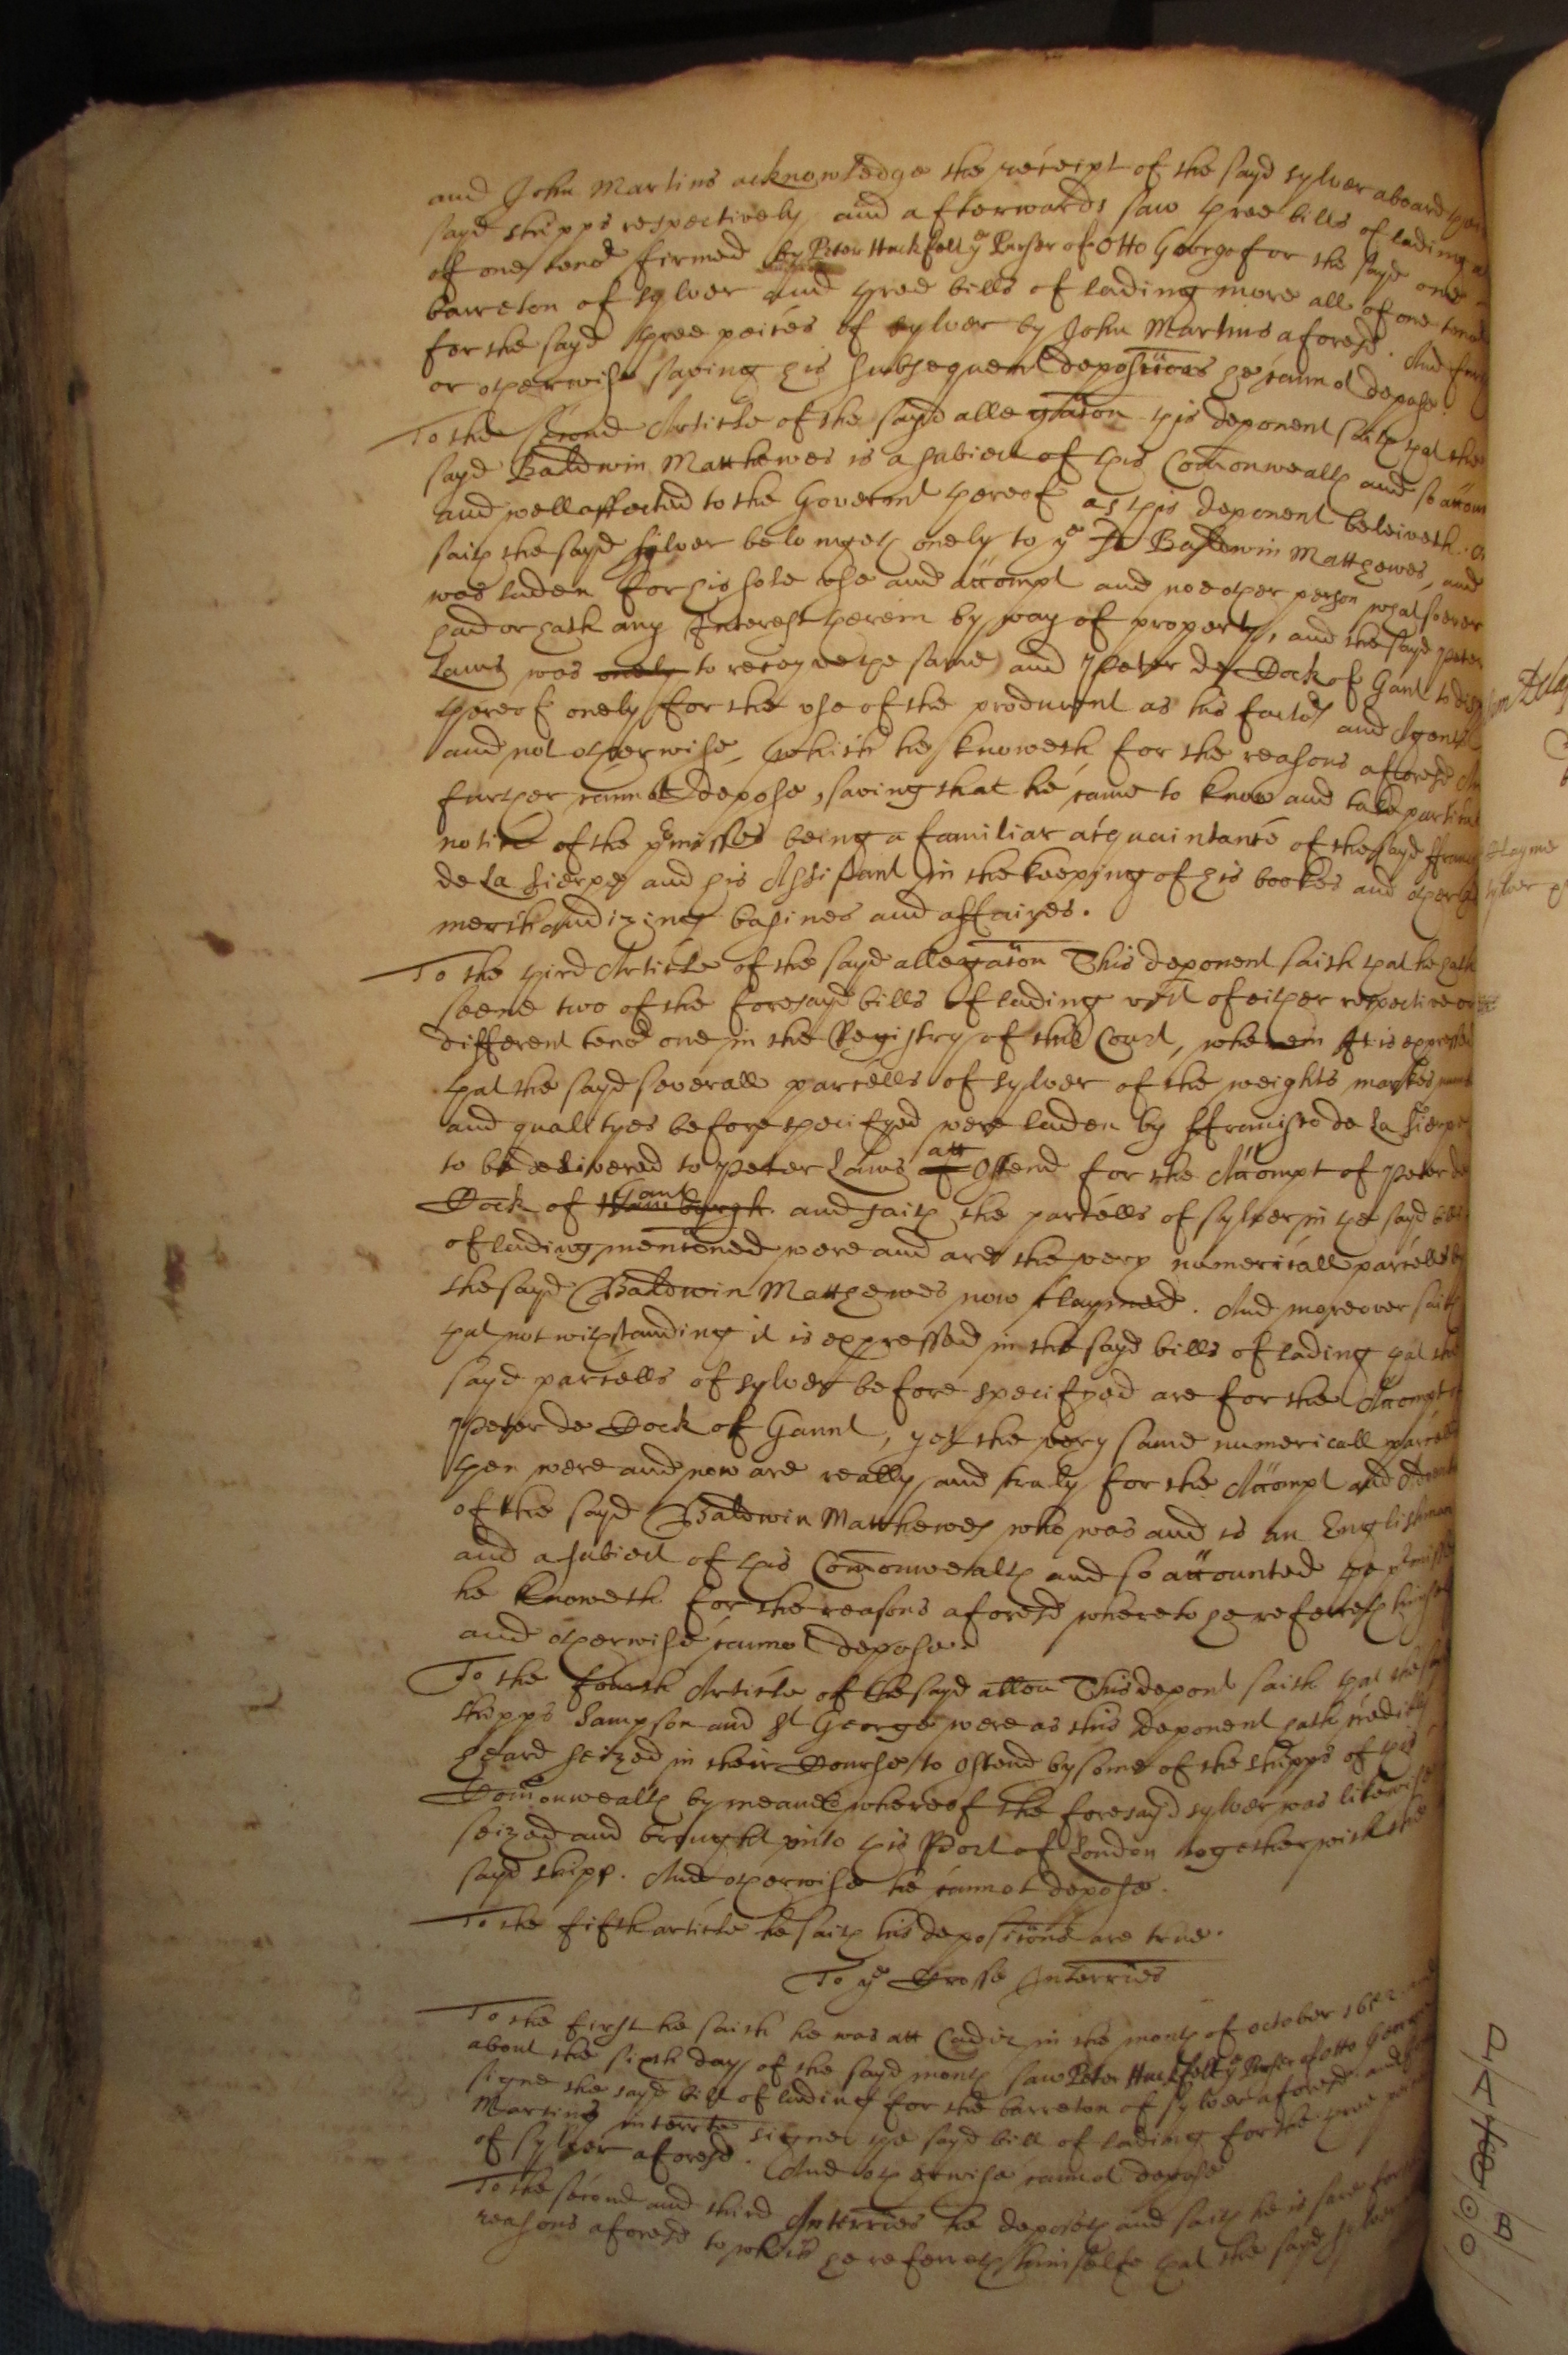 and John Martins acknowledge the receipt of the sayd sylver aboard their
sayd shipps respectively, and afterwards saw three bills of lading all
of one tenor firmed by Peter Huckfelt ye Purser of Otto George for the sayd one
barreton of sylver and three bills of lading more all of one tenor
for the sayd three peices of sylver by John Martins aforesd. And further
or otherwise saving his subsequent deposicions he cannot depose.
To the second Article of the sayd allegacon this deponent saith that the
sayd Baldwin Matthewes is a subiect of this Comonwealth and so accom
and well affected to the Governmt thereof as this deponent beleiveth.
saith the sayd sylver belongeth onely to ye sd Baldwin Matthewes, and
was laden for his sole use and accompt and noe other person whatsoever
had or hath any Interest therein by way of property, and the sayd Peter
Laws was onely to receyve the same and Peter de Cock of Gant to disp
thereof onely for the use of the producent as his factor and Agent
and not otherwise, which he knoweth for the reasons aforesd And
further cannot depose, saving that he came to know and take particular
notice of the pmisses being a familiar acquaintance of the sayd ffran
de La Sierpe and his Assistant in the keeping of his bookes and other
merchandizing busines and affaires.
To the third Article of the sayd allegacon This deponent saith that he hath
seene two of the foresayd bills of lading vizt of either respective or
different tenor one in the Registry of this Court, wherein It is expressed
that the sayd severall parcells of sylver of the weights markes
and quallityes before specifyed were laden by ffrancisco de La Sierpe
to be delivered to Peter Laws of att Ostend for the Accompt of Peter de
Cock of Hamburgh Gant and saith the parcells of sylver in the sayd bills
of lading mentioned were and are the very numericall parcells by
the sayd Baldwin Matthewes now claymed. And moreover saith
that notwithstanding it is expressed in the sayd bills of lading that the
sayd parcells of sylver before specifyed are for the Accompt of
Peter de Cock of Gaunt, yet the very same numericall parcells
then were and now are really and truly for the Accompt and
of the sayd Baldwin Matthewes who was and is an Englishman
and a subiect of this Comonwealth and so accounted the pmisses
he knoweth for the reasons aforesd whereto he referreth himselfe
and otherwise cannot depose.
To the fourth Article of the sayd allon This depont saith that the sayd
shipps Sampson and St George were as this deponent hath credibly
heard seized in their Course to Ostend by some of the shipps of this
Comonwealth by meanes whereof the foresayd sylver was likewise
seized and brought into this Port of London together with the
sayd shipp. And otherwise he cannot depose.
To the fifth article he saith his depositions are true.
To ye Crosse Interries
To the first he saith he was att Cadiz in the month of october 1652 and
about the sixth day of the sayd month saw Peter Huckfelt ye Purser of Otto George
signe the sayd bill of lading for the barreton of sylver aforesd and
Martins interrte signe the sayd bill of lading for the three peices
of sylver aforesd. And otherwise cannot depose
To the second and third Interries he deposeth and saith he is sure for the
reasons aforesd to which he referreth himselfe that the sayd sylver